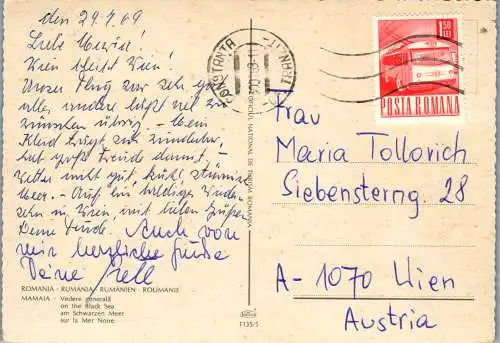 den 29.7.69
Liebe
Wien bleibt Wien!
Unser Flug war sehr gut
alles andere läßt viel zu
wünschen übrig. - Mein
Kleid trägt sich wunderbar,
hat große Freude damit,
Wetter nicht gut, kühl, stürmisch
Meer. - Auf ein baldiges Wieder-
sehn in Wien mit vielen Grüßen
Deine
Auch von
mir herzliche Grüße
Deine
ROMANIA - RUMANIA - RUMÄNIEN - ROUMANIE
MAMAIA - Vedere generală
on the Black Sea
am Schwarzen Meer
sur la Mer Noire.
OFICIUL NATIONAL DE TURISM ROMANIA
1135/5
CONSTANTA
1,50
LEI
POSTA ROMANA
Frau
Maria Tollovich
Siebensterng. 28
A-1070 Wien
Austria